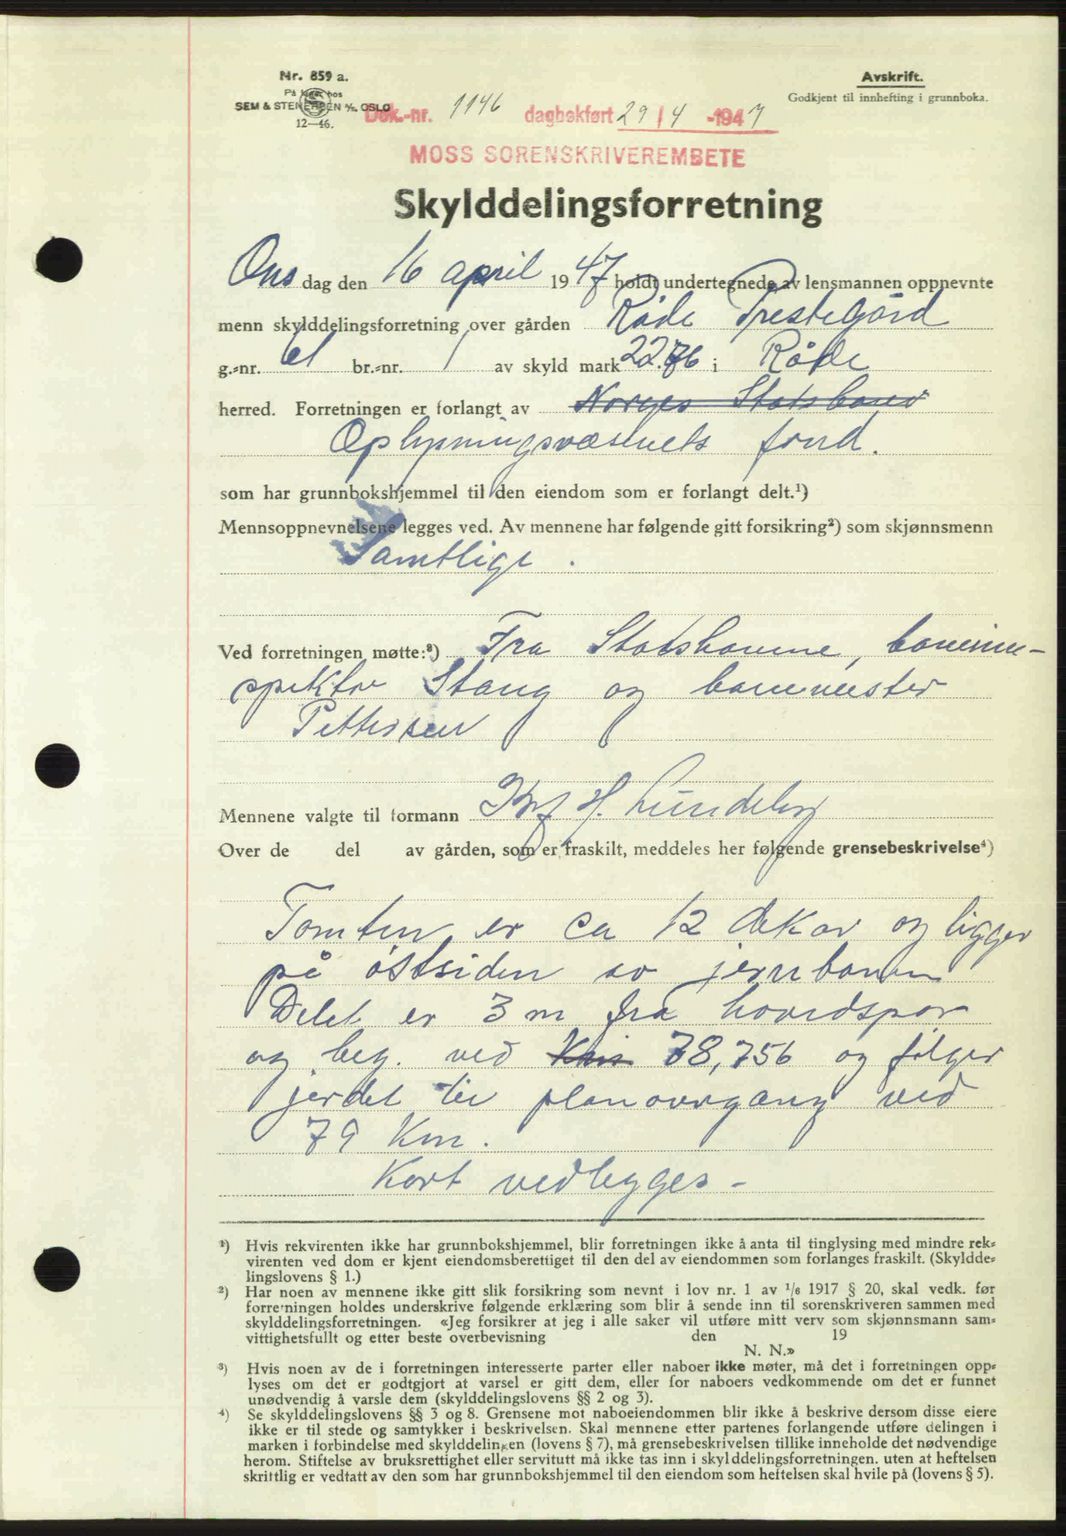 Nr. 859 a.
På lager hos
SEM & STENERSEN A/S, OSLO
12—46.
Avskrift.
Godkjent til innhefting i grunnboka.
Dok.-nr. 1146 dagbokført 29/4 -1947
MOSS SORENSKRIVEREMBETE
Skylddelingsforretning
Ons dag den 16 april 1947 holdt undertegnede av lensmannen oppnevnte
menn skylddelingsforretning over gården Råde Prestegård
g.-nr. 61 br.-nr. 1 av skyld mark 22.76 i Råde
herred. Forretningen er forlangt av Norges Statsbaner
Oplysningsvæsenets fond.
som har grunnbokshjemmel til den eiendom som er forlangt delt.¹)
Mennsoppnevnelsene legges ved. Av mennene har følgende gitt forsikring²) som skjønnsmenn
Samtlige.
Ved forretningen møtte:³) Fra Statsbanene, baneinn-
spektør Stang og banemester
Pettersen
Mennene valgte til formann H. Lundeby
Over de del av gården, som er fraskilt, meddeles her følgende grensebeskrivelse⁴)
Tomten er ca 12 dekar og ligger
på østsiden av jernbanen
Delet er 3 m fra hovedspor
og beg. ved Km 78,756 og følger
jerdet til planovergang ved
79 Km.
Kart vedlegges -
¹) Hvis rekvirenten ikke har grunnbokshjemmel, blir forretningen ikke å anta til tinglysing med mindre rek-
virenten ved dom er kjent eiendomsberettiget til den del av eiendommen som forlanges fraskilt. (Skyldde-
lingslovens § 1.)
²) Har noen av mennene ikke gitt slik forsikring som nevnt i lov nr. 1 av 1/6 1917 § 20, skal vedk. før
forretningen holdes underskrive følgende erklæring som blir å sende inn til sorenskriveren sammen med
skylddelingsforretningen. «Jeg forsikrer at jeg i alle saker vil utføre mitt verv som skjønnsmann sam-
vittighetsfullt og etter beste overbevisning den 19
N. N.»
³) Hvis noen av de i forretningen interesserte parter eller naboer ikke møter, må det i forretningen opp-
lyses om det er godtgjort at varsel er gitt dem, eller for naboers vedkommende om det er funnet
unødvendig å varsle dem (skylddelingslovens §§ 2 og 3).
⁴) Se skylddelingslovens §§ 3 og 8. Grensene mot naboeiendommen blir ikke å beskrive dersom disse eiere
ikke er til stede og samtykker i beskrivelsen. Skal mennene etter partenes forlangende utføre delingen i
marken i forbindelse med skylddelingen (lovens § 7), må grensebeskrivelsen tillike inneholde det nødvendige
herom. Stiftelse av bruksrettighet eller servitutt må ikke tas inn i skylddelingsforretningen, uten at heftelsen
skriftlig er vedtatt av den som har grunnbokshjemmel til den eiendom som heftelsen skal hvile på (lovens § 5).